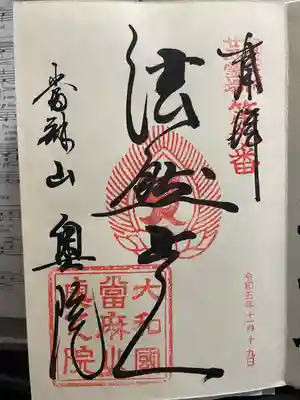 奉拝
番
令和五年十一月十九日
法然上人
當麻山 奥院
大和國
當麻山
奥之院